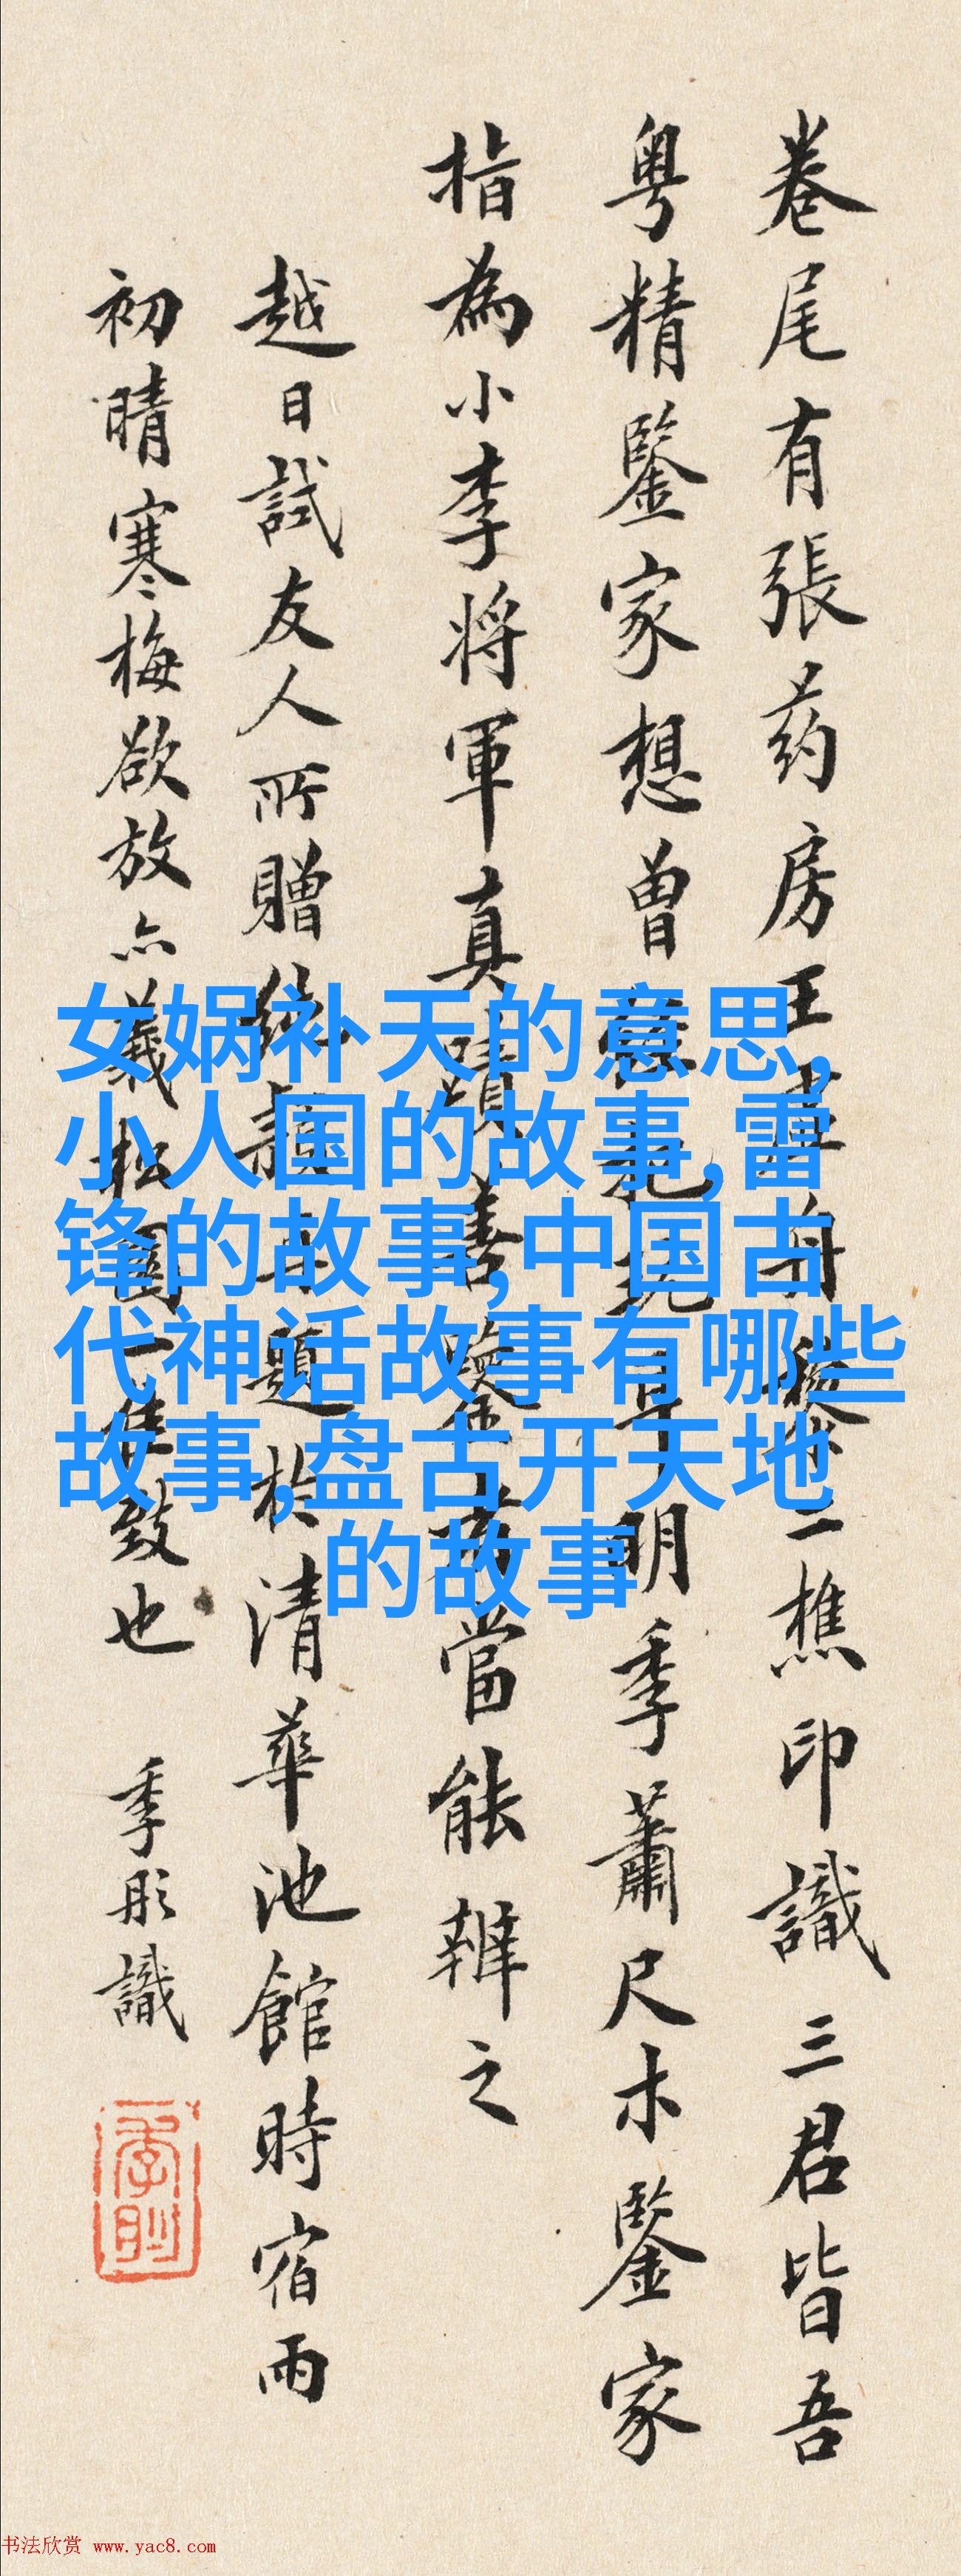 卷尾有張药房王
二樵印識三君皆吾
粤精鑒家想曾
明季蕭尺木鑒家
指為小李将軍真蹟善鑒者當能辨之
越日試友人所贈
題於清華池館時宿雨
初晴寒梅欲放亦
致也
季彤識
女娲补天的意思,
小人国的故事,雷
锋的故事,中国古
代神话故事有哪些
故事,盘古开天地
的故事
书法欣赏 www.yac8.com